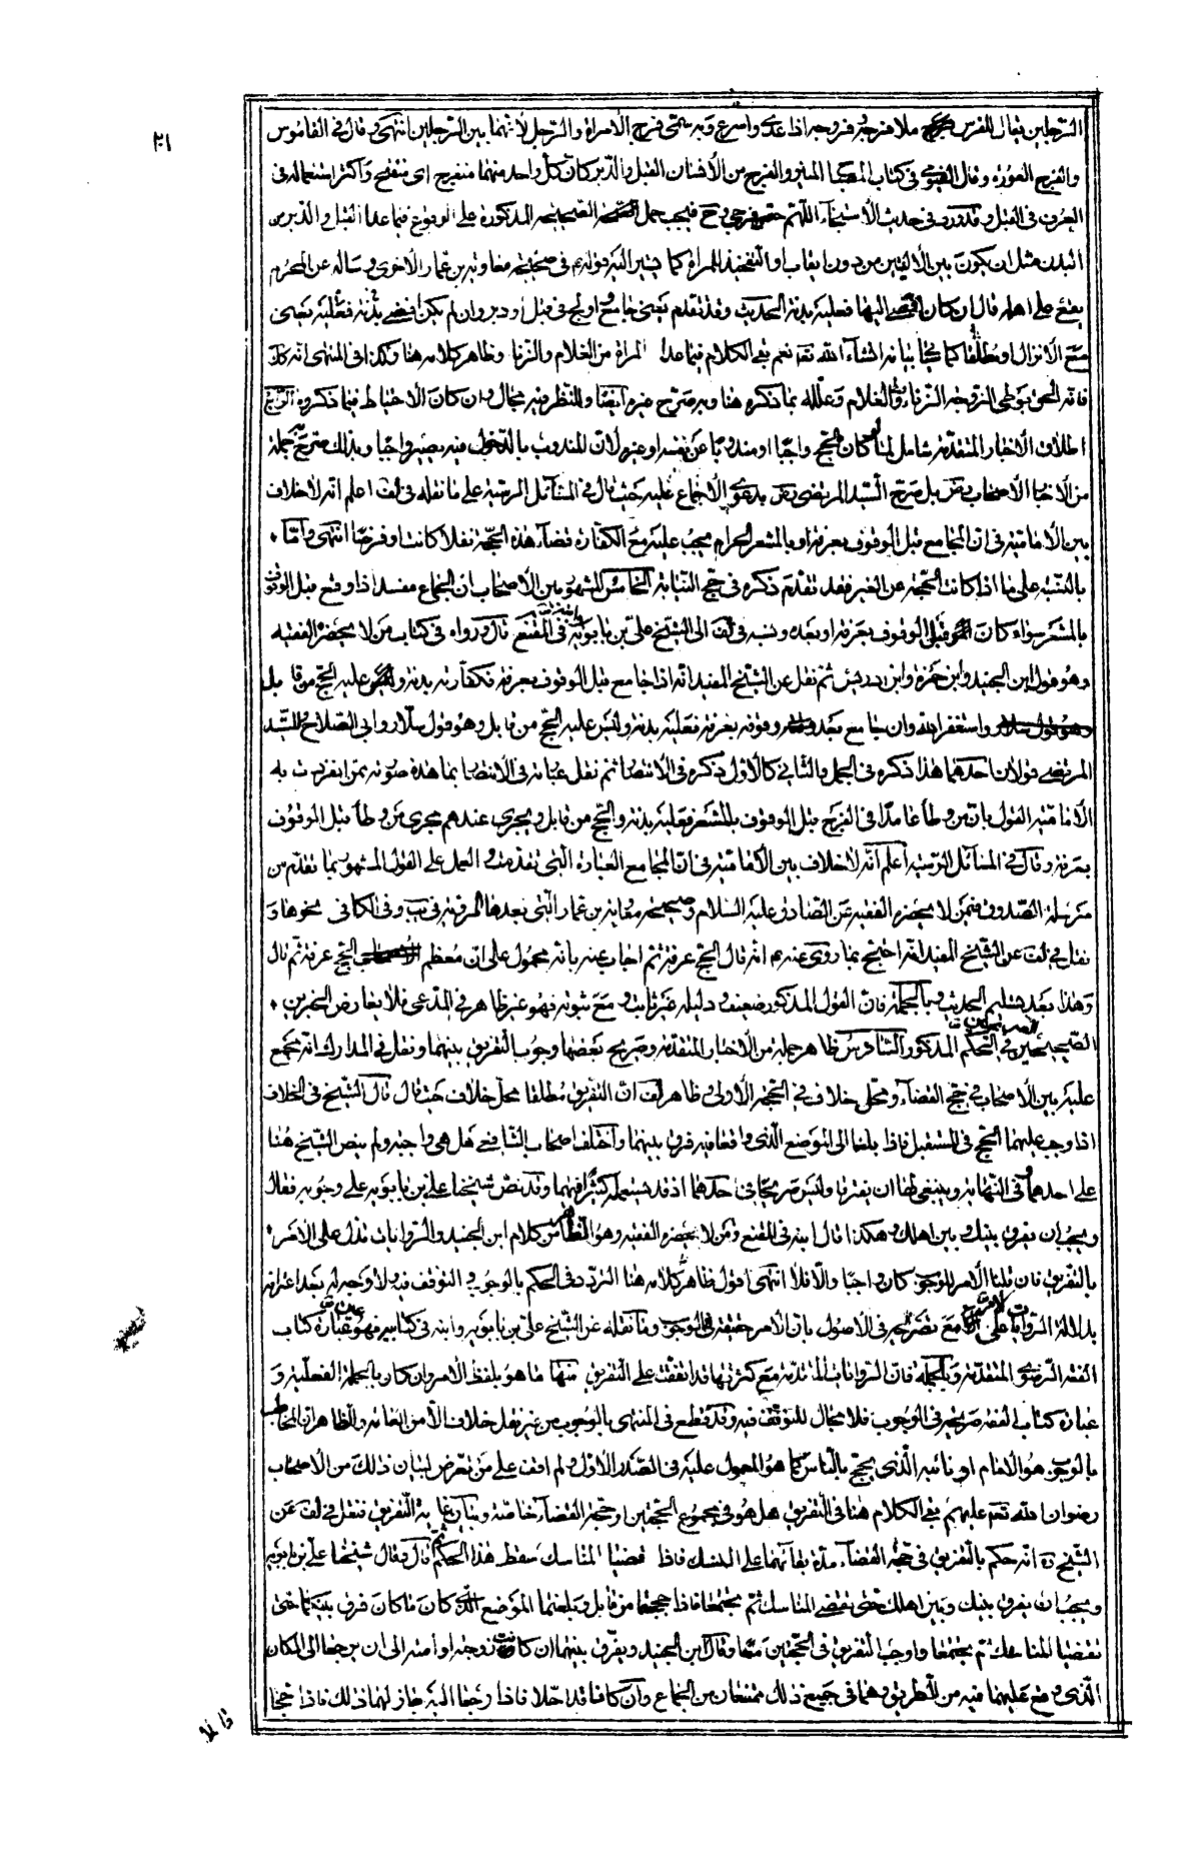 ٢٠١
الرجلين يقال للفرس ملا فرجه وفروجه اذا عدى واسرع وبه سمى فرج الامراة والرجل لانهما بين الرجلين انتهى وقال في القاموس
والفرج العورة وقال الفيومى في كتاب المصباح المنير والفرج من الانسان القبل والدبر كان كل واحد منهما منفرج اى منفتح واكثر استعماله في
العرف في القبل وقد ورد في حديث الاستنجاء اللهم حصن فرجى وح فيجب حمل الصحيحة المذكورة على الوقوع فيما عدا القبل والدبر من
البدن مثل ان يكون بين الاليتين من دون ايقاب او التفخيذ للمراة كما يشير اليه قوله في صحيحة معاوية بن عمار الاخرى وساله عن المحرم
يقع على اهله قال ان كان افضى اليها فعليه بدنة الحديث وقد تقدم يعنى جامع واولج في قبل او دبر وان لم يكن افضى بدنة فعليه يعنى
مع الانزال او مطلقا كما بيانه انشاء الله تعه نعم بقى الكلام فيما عدا المراة من الغلام والزنا وظاهر كلامه هنا وكذا في المنتهى انه
فانه الحق بوطى الزوجة الزناء والغلام وعلله بما ذكره هنا وبه صرح غيره ايضا وللنظر فيه مجال وان كان الاحتياط فيما ذكروه الرابع
اطلاق الاخبار المتقدمة شامل لما لو كان الحج واجبا او مندوبا عن نفسه او غيره لان المندوب بالدخول فيه يصير واجبا وبذلك صرح جملة
من الاصحاب بل صرح السيد المرتضى بدعوى الاجماع عليه حيث قال في المسائل الرسية على ما نقله في لف اعلم انه لا خلاف
بين الامامية في ان المجامع قبل الوقوف بعرفة او بالمشعر الحرام يجب عليه مع الكفارة قضاء هذه الحجة نفلا كانت او فرضا انتهى واما
بالنسبة على ما اذا كانت الحجة عن الغير فقد تقدم ذكره في حج النيابة الخامس المشهور بين الاصحاب ان الجماع مفسد اذا وقع قبل الوقوف
بالمشعر سواء كان قبل الوقوف بعرفة او بعده ونسبه في لف الى الشيخ على بن بابويه وابنه في المقنع قال ورواه في كتاب من لا يحضره الفقيه
وهو قول ابن الجنيد وابن حمزة وابن ادريس ثم نقل عن الشيخ المفيد انه اذا جامع قبل الوقوف بعرفة فكفارته بدنة وعليه الحج من قابل
واستغفر الله وان جامع بعد وقوفه بعرفة فعليه بدنة وليس عليه الحج من قابل وهو قول سلار وابى الصلاح وللسيد
المرتضى قولان احدهما هذا ذكره في الجمل والثانى كالاول ذكره في الانتصار ثم نقل عبارته في الانتصار بما هذه صورته مما انفردت به
الامامية القول بان من وطأ عامدا في الفرج قبل الوقوف بالمشعر فعليه بدنة والحج من قابل ويجرى عندهم مجرى من وطأ قبل الوقوف
بعرفة وقال في المسائل الرسية اعلم انه لا خلاف بين الامامية في ان المجامع العبارة التى تقدمت والعمل على القول المشهور لما تقدم من
مرسلة الصدوق في من لا يحضره الفقيه عن الصادق عليه السلام وصحيحة معوية بن عمار التى بعدها المروية في يب وفي الكافى نحوها و
نقل في لف عن الشيخ المفيد انه احتج بما روى عنهم انه قال الحج عرفة ثم اجاب عنه بانه محمول على ان معظم الحج عرفة ثم قال
وهذا بعد تسليم الحديث وبالجملة فان القول المذكور ضعيف ودليله غير ثابت ومع ثبوته فهو غير ظاهر في المدعى فلا يعارض الخبرين
الصحيحين الصريحين في الحكم المذكور السادس ظاهر جملة من الاخبار المتقدمة وصريح بعضها وجوب التفريق بينهما ونقل في المدارك انه مجمع
عليه بين الاصحاب في حج القضاء ومحل خلاف في الحجة الاولى وظاهر لف ان التفريق مطلقا محل خلاف حيث قال قال الشيخ في الخلاف
اذا وجب عليهما الحج في المستقبل فاذا بلغا الى الموضع الذى واقعها فيه فرق بينهما واختلف اصحاب الشافعى هل هى واجبة ولم ينص الشيخ هنا
على احدهما وفى النهاية وينبغى لهما ان يفترقا وليس صريحا في احدهما اذ قد يستعمله كثيرا فيهما وقد نص شيخنا على بن بابويه على وجوبه فقال
ويجب ان يفرق بينك وبين اهلك وهكذا قال ابنه في المقنع ومن لا يحضره الفقيه وهو الظاهر من كلام ابن الجنيد والروايات تدل على الامر
بالتفريق فان قلنا الامر للوجوب كان واجبا والا فلا انتهى اقول ظاهر كلامه هنا التردد في الحكم بالوجوب والتوقف فيه ولا وجه له بعد اعترافه
بدلالة الروايات على الامر مع تصريحه في الاصول بان الامر حقيقة في الوجوب وما نقله عن الشيخ على بن بابويه وابنه في كتابيه فهو عين عبارة كتاب
الفقه الرضوى المتقدمة وبالجملة فان الروايات المتقدمة مع كثرتها قد اتفقت على التفريق منها ما هو بلفظ الامر وان كان بالجملة الفعلية و
عبارة كتاب الفقه صريحة في الوجوب فلا مجال للتوقف فيه وقد قطع في المنتهى بالوجوب من غير نقل خلاف الا من العامة والظاهر ان المخاطب
بالوجوب هو الامام او نائبه الذى يحج بالناس كما هو المعمول عليه في الصدر الاول ولم اقف على من تعرض لبيان ذلك من الاصحاب
رضوان الله تعه عليهم بقى الكلام هنا في التفريق هل هو في مجموع الحجتين او حجة القضاء خاصة وبيان غاية التفريق فنقل في لف عن
الشيخ ره انه حكم بالتفريق في حجة القضاء مدة بقائهما على المنسك فاذا قضيا المناسك سقط هذا الحكم ثم قال وقال شيخنا على بن بابويه
ويجب ان يفرق بينك وبين اهلك حتى تقضى المناسك ثم يجتمعا فاذا حججتما من قابل وبلغتما الموضع الذى كان ما كان فرق بينكما حتى
تقضيا المناسك ثم يجتمعا واوجب التفريق في الحجتين معا وقال ابن الجنيد ويفرق بينهما ان كانت زوجته او امته الى ان يرجعا الى المكان
الذى وقع عليهما فيه من الطريق وهما في جميع ذلك ممتنعان من الجماع وان كانا قد احلا فاذا رجعا اليه جاز لهما ذلك فاذا حجا